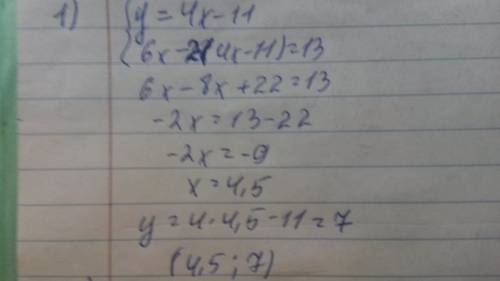 1) {y = 4x - 11
{6x - 2(4x - 11) = 13
6x - 8x + 22 = 13
-2x = 13 - 22
-2x = -9
x = 4,5
y = 4 · 4,5 - 11 = 7
(4,5 ; 7)